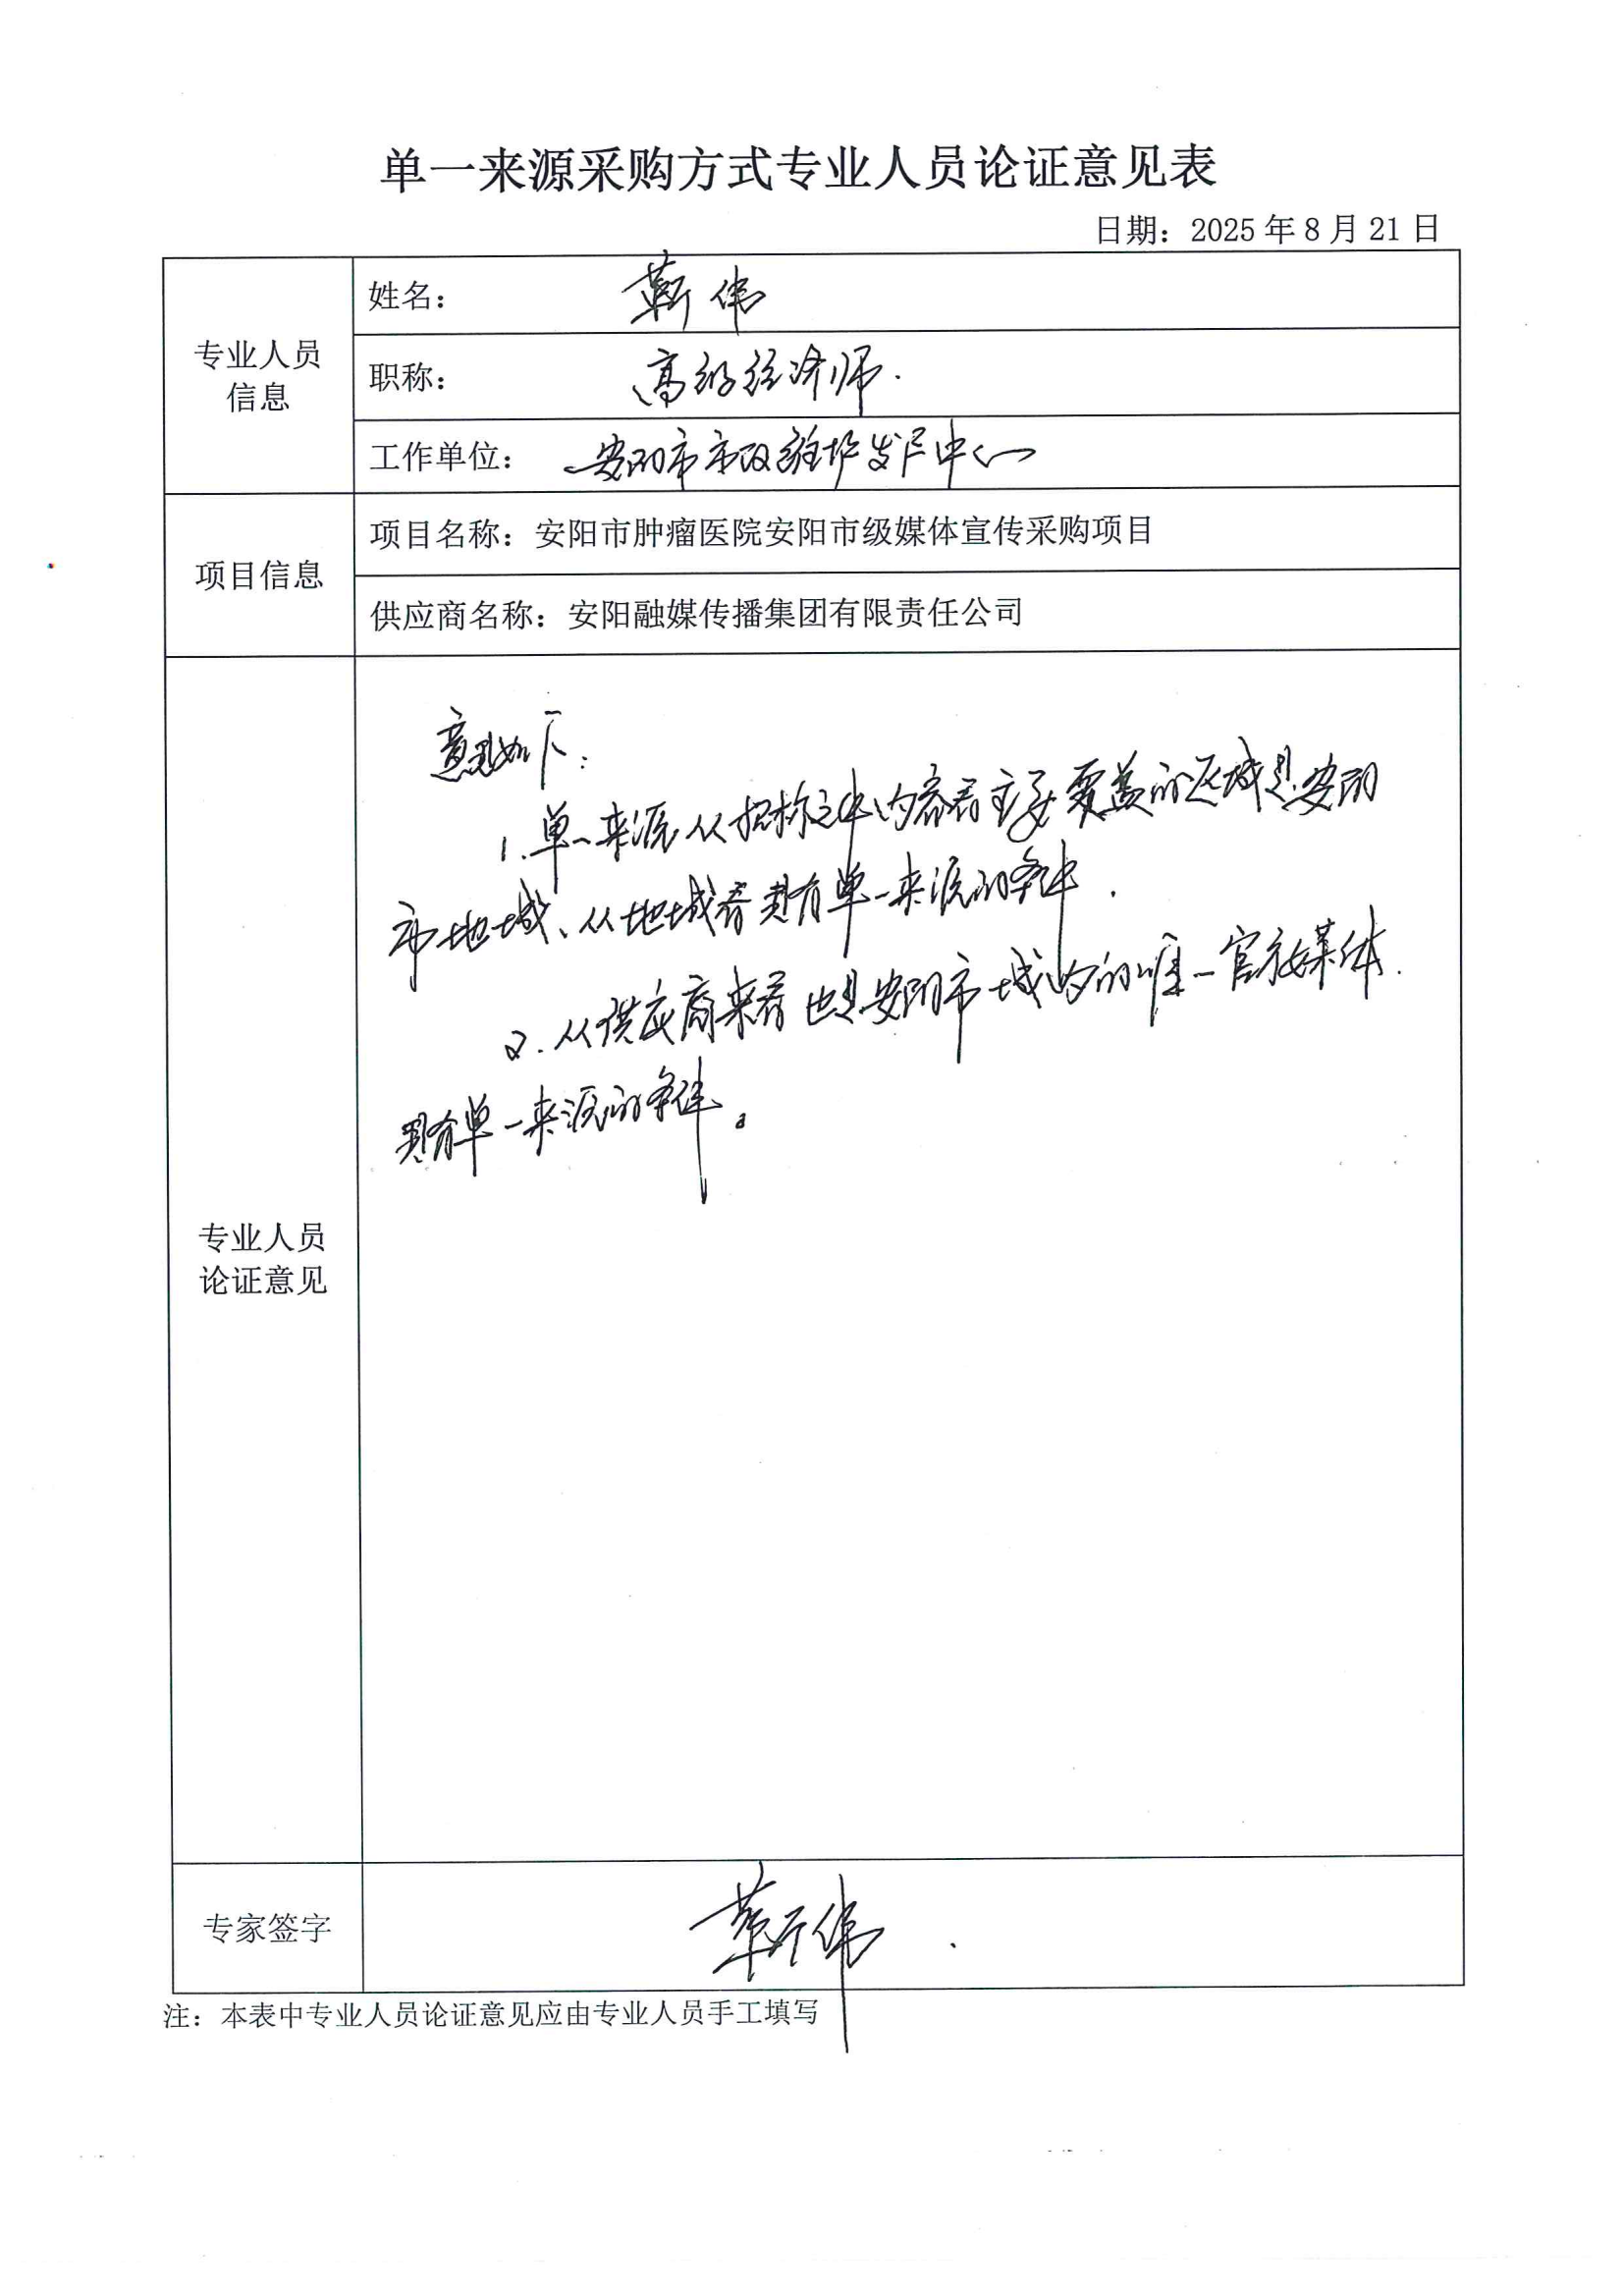 单一来源采购方式专业人员论证意见表
日期：2025年8月21日
专业人员
信息
姓名：靳伟
职称：高级经济师.
工作单位：安阳市市政维护发展中心
项目信息
项目名称：安阳市肿瘤医院安阳市级媒体宣传采购项目
供应商名称：安阳融媒传播集团有限责任公司
专业人员
论证意见
意见如下：
1.单一来源从招标文件内容看主要覆盖的区域是安阳
市地域、从地域看具有单一来源的条件.
2.从供应商来看也是安阳市域内的唯一官方媒体.
具有单一来源的条件。
专家签字
靳伟.
注：本表中专业人员论证意见应由专业人员手工填写